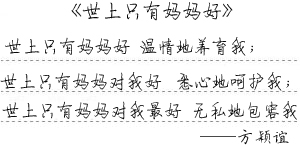 《世上只有妈妈好》
世上只有妈妈好 温情地养育我；
世上只有妈妈对我好 悉心地呵护我；
世上只有妈妈对我最好 无私地包容我
——方颖谊